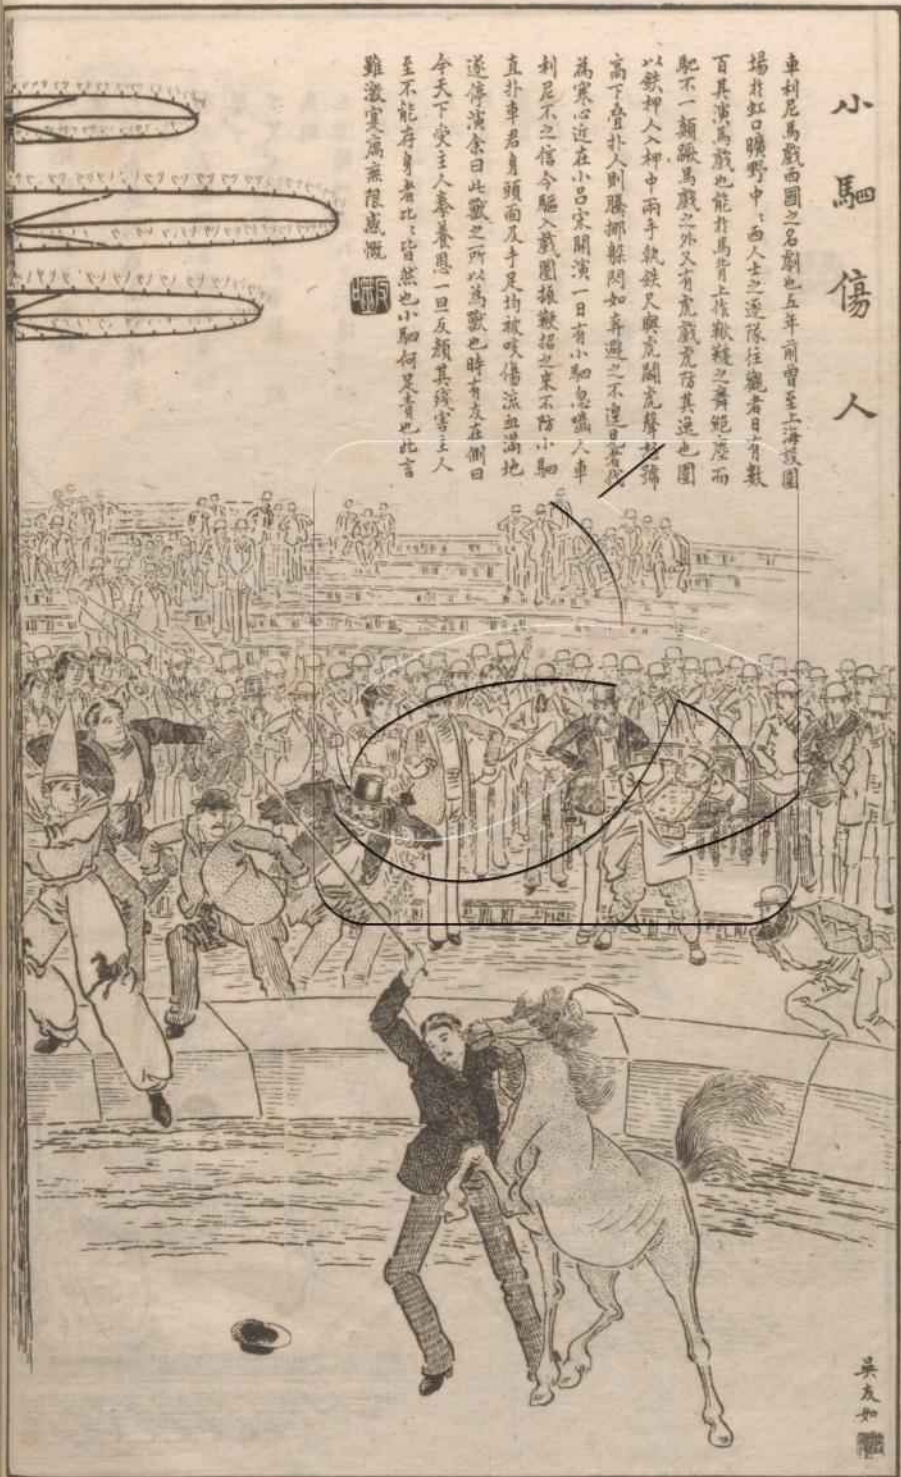 小駟傷人
車利尼馬戲西國之名劇也五年前曾至上海設圍
場於虹口曠野中中西人士之逐隊往觀者日有數
百其演馬戲也能於馬背上作鞦韆之舞絕塵而
馳不一顛蹶馬戲之外又有虎戲虎防其逸也圍
以鉄柙人入柙中兩手執鉄尺與虎鬭虎聲號
高下聳扑人則騰挪躲閃如弄避之不遑見者代
為寒心近在小呂宋開演一日有小駟忽囓人車
利尼不之信令驅入戲圍振鞭招之來不防小駟
直扑車君身頭面及手足均被咬傷流血滿地
遂停演余曰此獸之所以為獸也時有友在側曰
今天下受主人豢養恩一旦反顏其殘害主人
至不能存身者比比皆然也小駟何足責也此言
雖激實寓無限感慨
吳友如